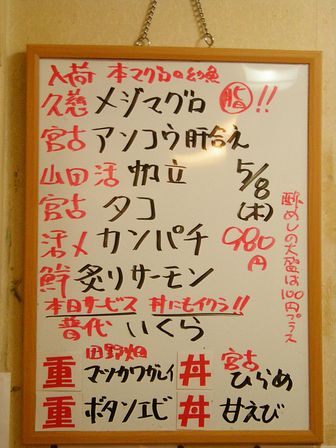 入荷 本マグロの幼魚
久慈 メジマグロ 脂!!
宮古 アンコウ肝合え
山田 活 帆立 5/8
宮古 タコ (木)
活〆 カンパチ 980円
鮮 炙りサーモン
本日サービス 丼にもイクラ!!
普代 いくら
重 田野畑 マツカワガレイ
丼 宮古 ひらめ
重 ボタンエビ
丼 甘えび
酢めしの大盛は100円プラス